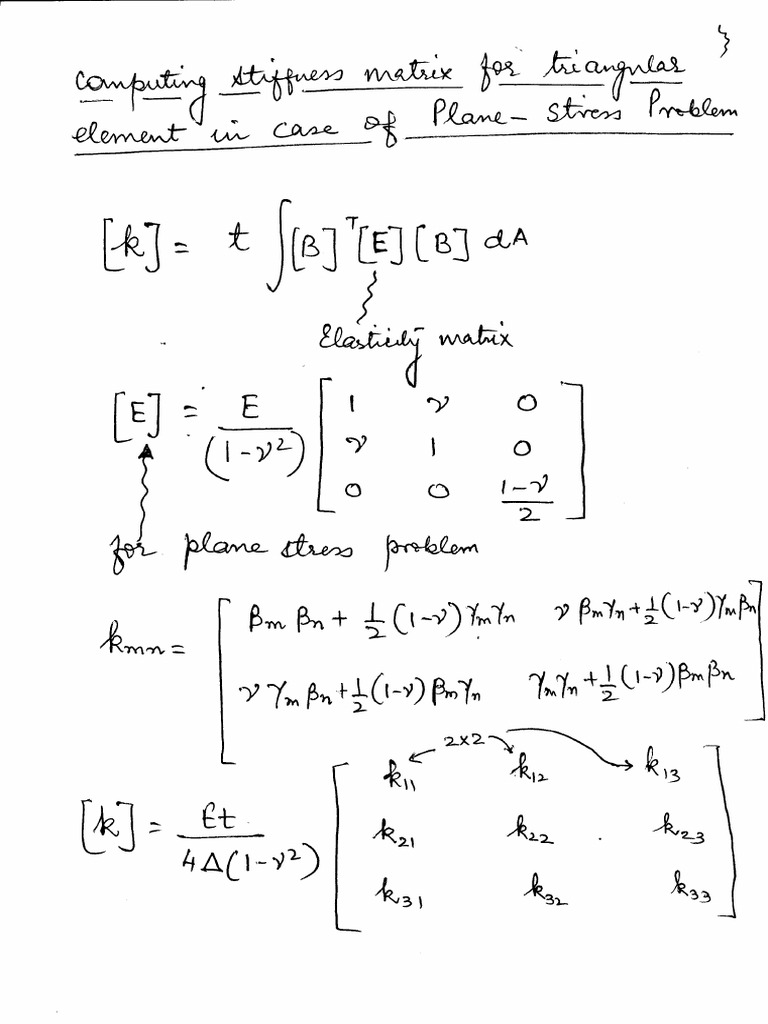 Computing stiffness matrix for triangular
element in case of Plane - Stress Problem
[k] = t ∫[B]ᵀ[E][B] dA
Elasticity matrix
[E] = E/(1-ν²) [1 ν 0
ν 1 0
0 0 (1-ν)/2]
for plane stress problem
kmn = [βm βn + 1/2 (1-ν) γmγn ν βmγn + 1/2 (1-ν) γmβn
ν γm βn + 1/2 (1-ν) βmγn γmγn + 1/2 (1-ν) βmβn]
2x2
[k] = Et/(4Δ(1-ν²)) [k11 k12 k13
k21 k22 k23
k31 k32 k33]